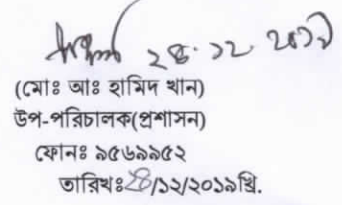 ২৪.১২.২০১৯
(মোঃ আঃ হামিদ খান)
উপ-পরিচালক(প্রশাসন)
ফোনঃ ৯৫৬৯৯৫২
তারিখঃ২৪/১২/২০১৯খ্রি.